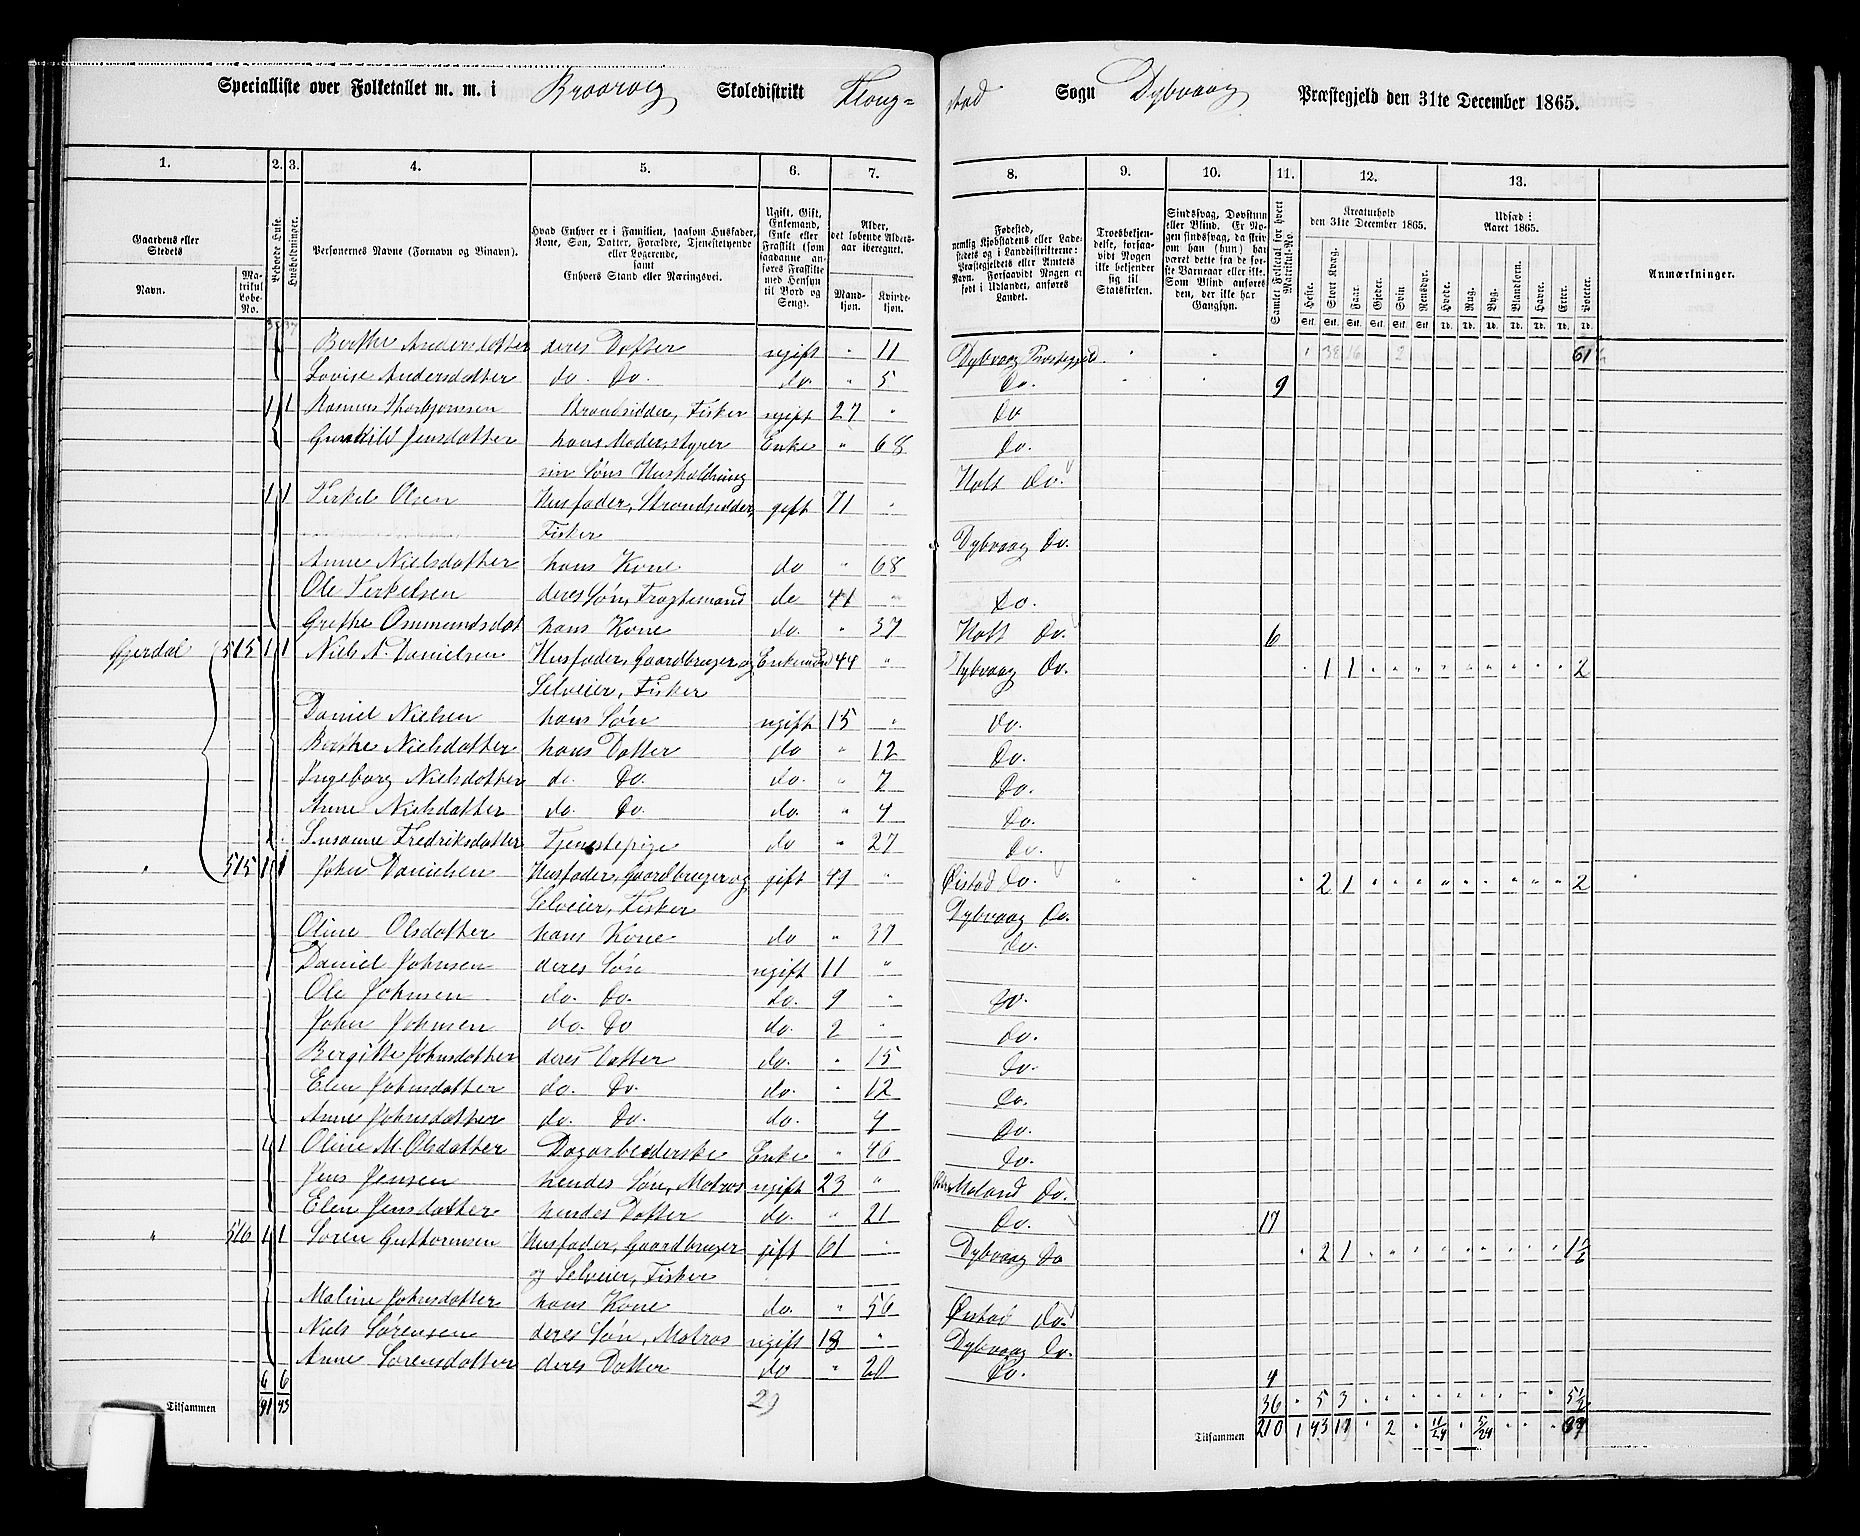 Specialliste over Folketallet m. m. i Skoledistrikt Sogn Dybvaag Præstegjeld den 31te December 1865.
1. 2. 3. 4. 5. 6. 7. 8. 9. 10. 11. 12. 13.
Gaardens eller Stedets
Navn. Matrikul Løbe-No.
Beboede Huse. Husholdninger.
Personernes Navne (Fornavn og Binavn).
Hvad Enhver er i Familien, saasom Husfader, Kone, Søn, Datter, Forældre, Tjenestetyende eller Logerende, samt Enhvers Stand eller Næringsvei.
Ugift, Gift, Enkemand, Enke eller Fraskilt (som saadanne anføres Fraskilte med Hensyn til Bord og Seng).
Alder, det løbende Aldersaar iberegnet.
Mandkjøn. Kvindekjøn.
Fødested, nemlig Kjøbstadens eller Ladestedets og i Landdistrikterne: Præstegjeldets eller Amtets Navn. Forsaavidt Nogen er født i Udlandet, anføres Landet.
Troesbekjendelse, forsaavidt Nogen ikke bekjender sig til Statskirken.
Sindssvag, Døvstum eller Blind. Er Nogen sindssvag, da skrives om han (hun) har været dette fra de første Barneaar eller ikke. Som Blind anføres den, der ikke har Gangsyn.
Samlet Folketal for hvert Matrikul-No.
Kreaturhold den 31te December 1865.
Heste. Stort Kvæg. Faar. Gjeder. Svin Rensdyr.
Udsæd i Aaret 1865.
Hvede. Rug. Byg. Blandkorn. Havre. Erter. Poteter.
Anmærkninger.
Berthe Andersdatter deres Datter ugift " 11 Dybvaag Præstegjeld
Lovise Andersdatter do. Do. do " 5 Do. 9
1 1 Rasmus Thorbjørnsen Strandsidder, Fisker ugift 27 " Do
Gunhild Jensdatter hans Moder, styrer Enke " 68 Do.
sin Søns Husholdning
1 1 Terkel Olsen Husfader, Strandsidder, gift 71 " Holt Do.
Fisker
Anne Nielsdatter hans Kone do " 68 Dybvaag Do.
Ole Terkelsen deres Søn, Fragtemand do 41 " Do.
Grethe Ommundsdat hans Kone do. " 37 Holt Do. 6
Gjerdal 515 1 1 Niels A. Danielsen Husfader, Gaardbruger og Enkemand 44 " Dybvaag Do. 1 1 2
Selveier, Fisker
Daniel Nielsen hans Søn ugift 15 " Do.
Berthe Nielsdatter hans Datter do " 12 Do.
Ingeborg Nielsdatter do. Do. do. " 7 Do.
Anne Nielsdatter do. Do. do. " 4 Do.
Susanne Fredriksdatter Tjenestepige do " 27 Do.
" 515 1 1 John Danielsen Husfader, Gaardbruger og gift 49 " Øistad Do. 2 1 2
Selveier, Fisker
Oline Olsdatter hans Kone do " 37 Dybvaag Do.
Daniel Johnsen deres Søn ugift 11 " do.
Ole Johnsen do. Do. Do. 9 " Do.
John Johnsen do. Do do. 2 " Do.
Bergitte Johnsdatter deres Datter do. " 15 Do.
Elen Johnsdatter do. Do. do. " 12 Do.
Anne Johnsdatter do. Do. do. " 4 Do.
1 Oline M. Olsdatter Dagarbeiderske Enke " 46 Do.
Jens Jensen hendes Søn, Matros ugift 23 " Moland Do.
Elen Jensdatter hendes Datter do. " 21 Do. 17
" 516 1 1 Søren Guttormsen Husfader, Gaardbruger gift 61 " Dybvaag Do 2 1 1 1/2
og Selveier, Fisker
Maline Johnsdatter hans Kone do. " 56 Øistad Do.
Niels Sørensen deres Søn, Matros ugift 18 " Dybvaag Do.
Anne Sørensdatter deres Datter do " 20 Do. 4
6 6 36 5 3 5 1/2
Tilsammen 41 43 29 Tilsammen 210 1 43 19 2